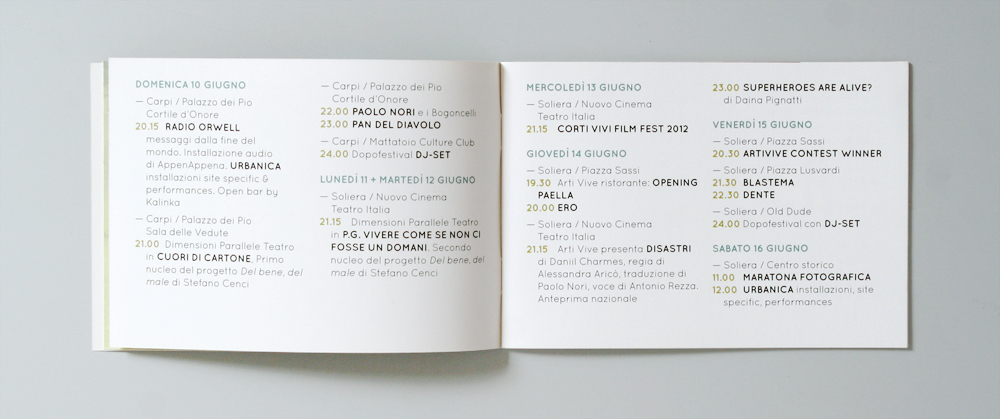 DOMENICA 10 GIUGNO
— Carpi / Palazzo dei Pio
Cortile d'Onore
20.15 RADIO ORWELL
messaggi dalla fine del
mondo. Installazione audio
di AppenAppena. URBANICA
installazioni site specific &
performances. Open bar by
Kalinka
— Carpi / Palazzo dei Pio
Sala delle Vedute
21.00 Dimensioni Parallele Teatro
in CUORI DI CARTONE. Primo
nucleo del progetto Del bene, del
male di Stefano Cenci
— Carpi / Palazzo dei Pio
Cortile d'Onore
22.00 PAOLO NORI e i Bogoncelli
23.00 PAN DEL DIAVOLO
— Carpi / Mattatoio Culture Club
24.00 Dopofestival DJ-SET
LUNEDÌ 11 + MARTEDÌ 12 GIUGNO
— Soliera / Nuovo Cinema
Teatro Italia
21.15 Dimensioni Parallele Teatro
in P.G. VIVERE COME SE NON CI
FOSSE UN DOMANI. Secondo
nucleo del progetto Del bene, del
male di Stefano Cenci
MERCOLEDÌ 13 GIUGNO
— Soliera / Nuovo Cinema
Teatro Italia
21.15 CORTI VIVI FILM FEST 2012
GIOVEDÌ 14 GIUGNO
— Soliera / Piazza Sassi
19.30 Arti Vive ristorante: OPENING
PAELLA
20.00 ERO
— Soliera / Nuovo Cinema
Teatro Italia
21.15 Arti Vive presenta DISASTRI
di Daniil Charmes, regia di
Alessandra Aricò, traduzione di
Paolo Nori, voce di Antonio Rezza.
Anteprima nazionale
23.00 SUPERHEROES ARE ALIVE?
di Daina Pignatti
VENERDÌ 15 GIUGNO
— Soliera / Piazza Sassi
20.30 ARTIVIVE CONTEST WINNER
— Soliera / Piazza Lusvardi
21.30 BLASTEMA
22.30 DENTE
— Soliera / Old Dude
24.00 Dopofestival con DJ-SET
SABATO 16 GIUGNO
— Soliera / Centro storico
11.00 MARATONA FOTOGRAFICA
12.00 URBANICA installazioni, site
specific, performances